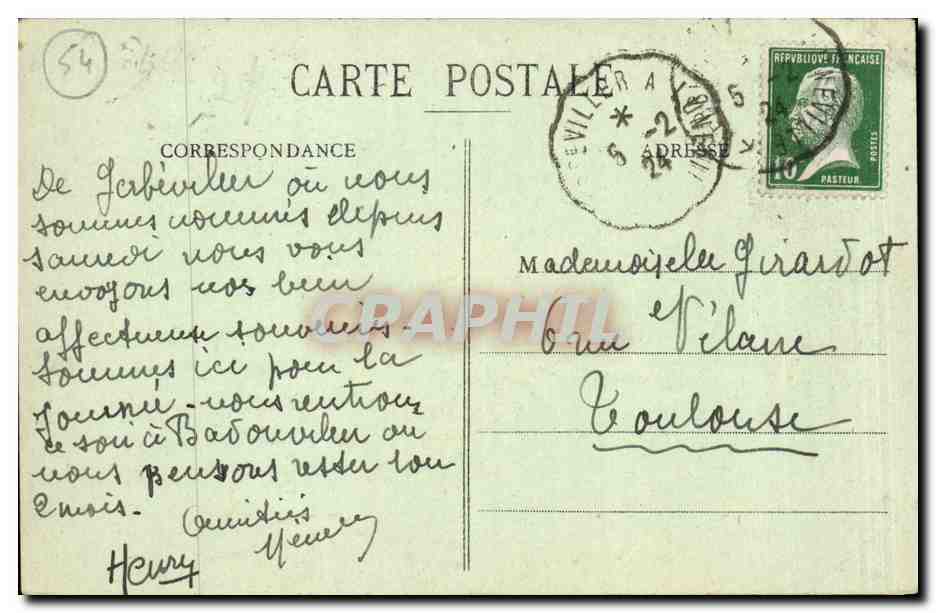 54
CARTE POSTALE
CORRESPONDANCE
ADRESSE
REPVBLIQVE FRANÇAISE
POSTES
10
PASTEUR
5 -2
24
De Gerbéviller où nous
sommes nommés depuis
samedi nous vous
envoyons nos bien
affectueux souvenirs -
Sommes ici pour la
journée - nous rentrons
ce soir à Badonviller où
nous pensons rester 1 ou
2 mois.
Amitiés
Henry
Mademoiselle Girardot
6 rue Vélane
Toulouse
CRAPHIL